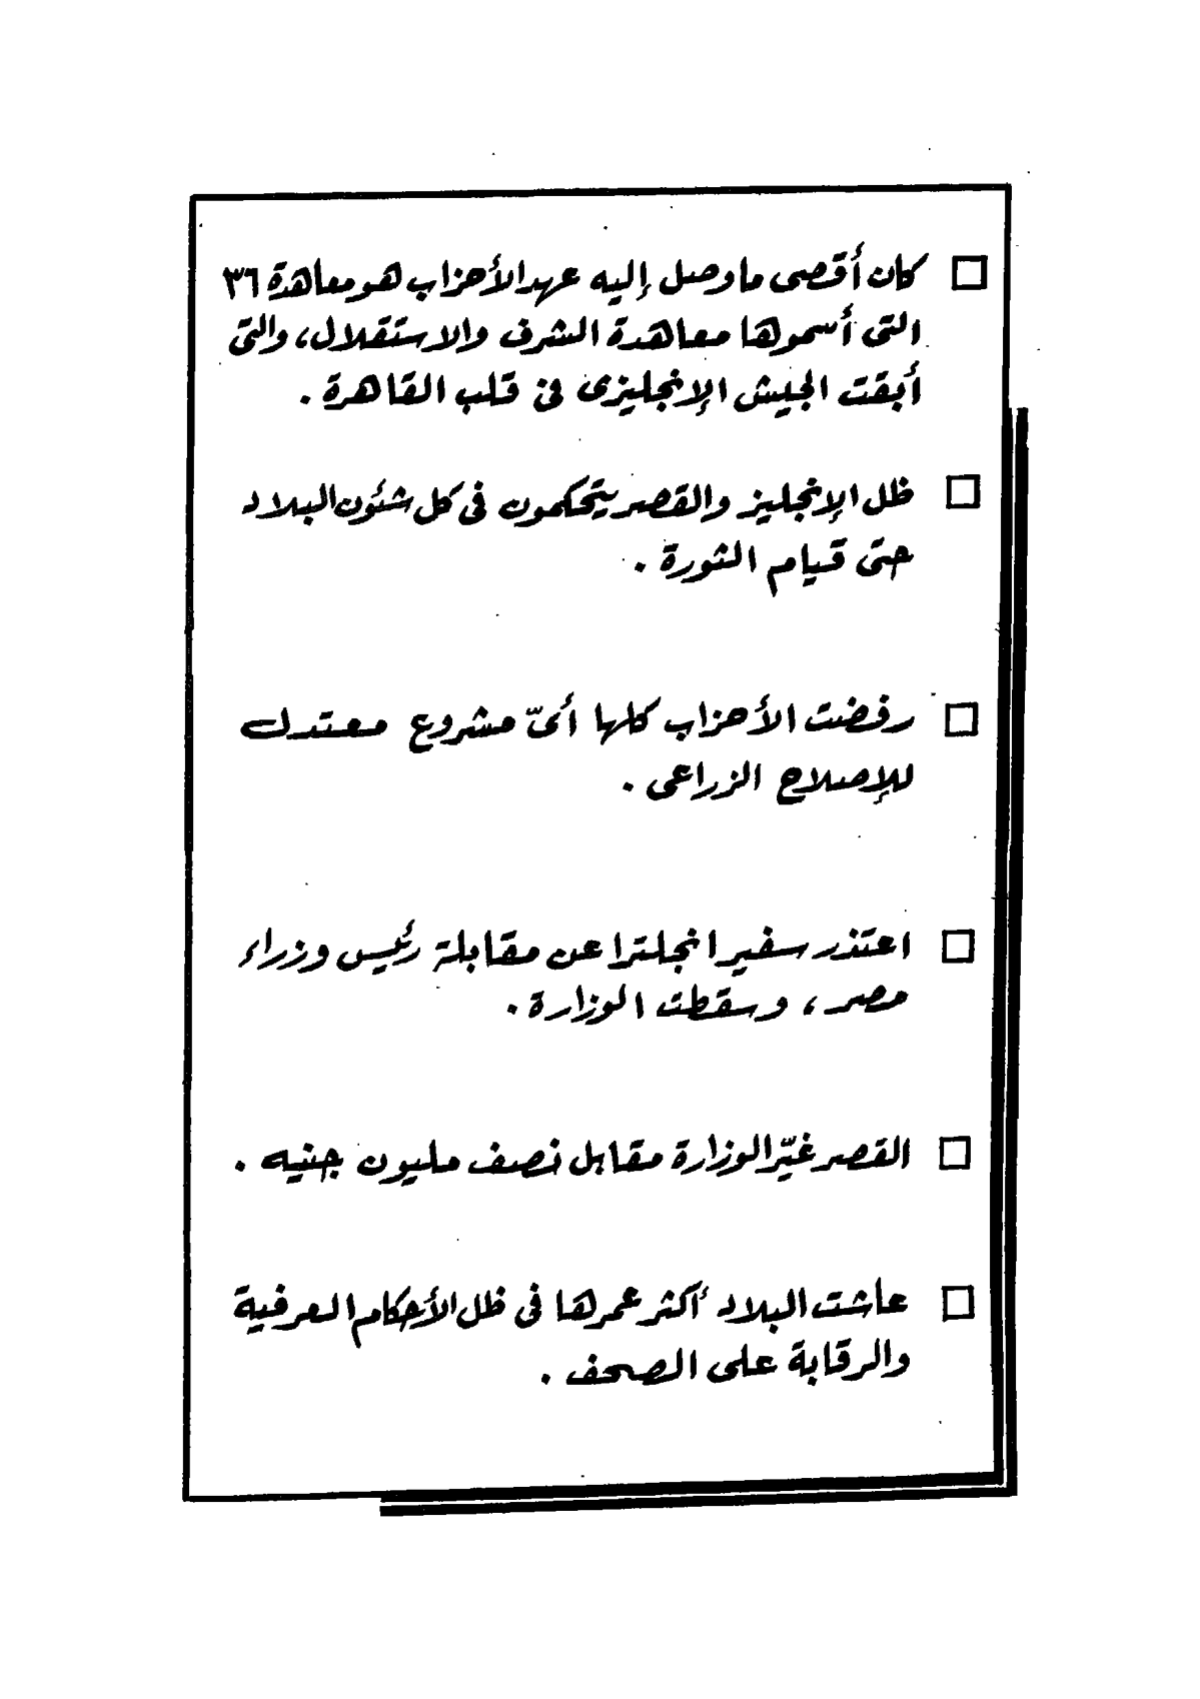 □ كان أقصى ما وصل إليه عهد الأحزاب هو معاهدة ٣٦
التى أسموها معاهدة الشرف والاستقلال، والتى
أبقت الجيش الإنجليزى فى قلب القاهرة .
□ ظل الإنجليز والقصر يتحكمون فى كل شئون البلاد
حتى قيام الثورة .
□ رفضت الأحزاب كلها أىّ مشروع معتدل
للإصلاح الزراعى .
□ اعتذر سفير انجلترا عن مقابلة رئيس وزراء
مصر، وسقطت الوزارة .
□ القصر غيّر الوزارة مقابل نصف مليون جنيه .
□ عاشت البلاد أكثر عمرها فى ظل الأحكام العرفية
والرقابة على الصحف .